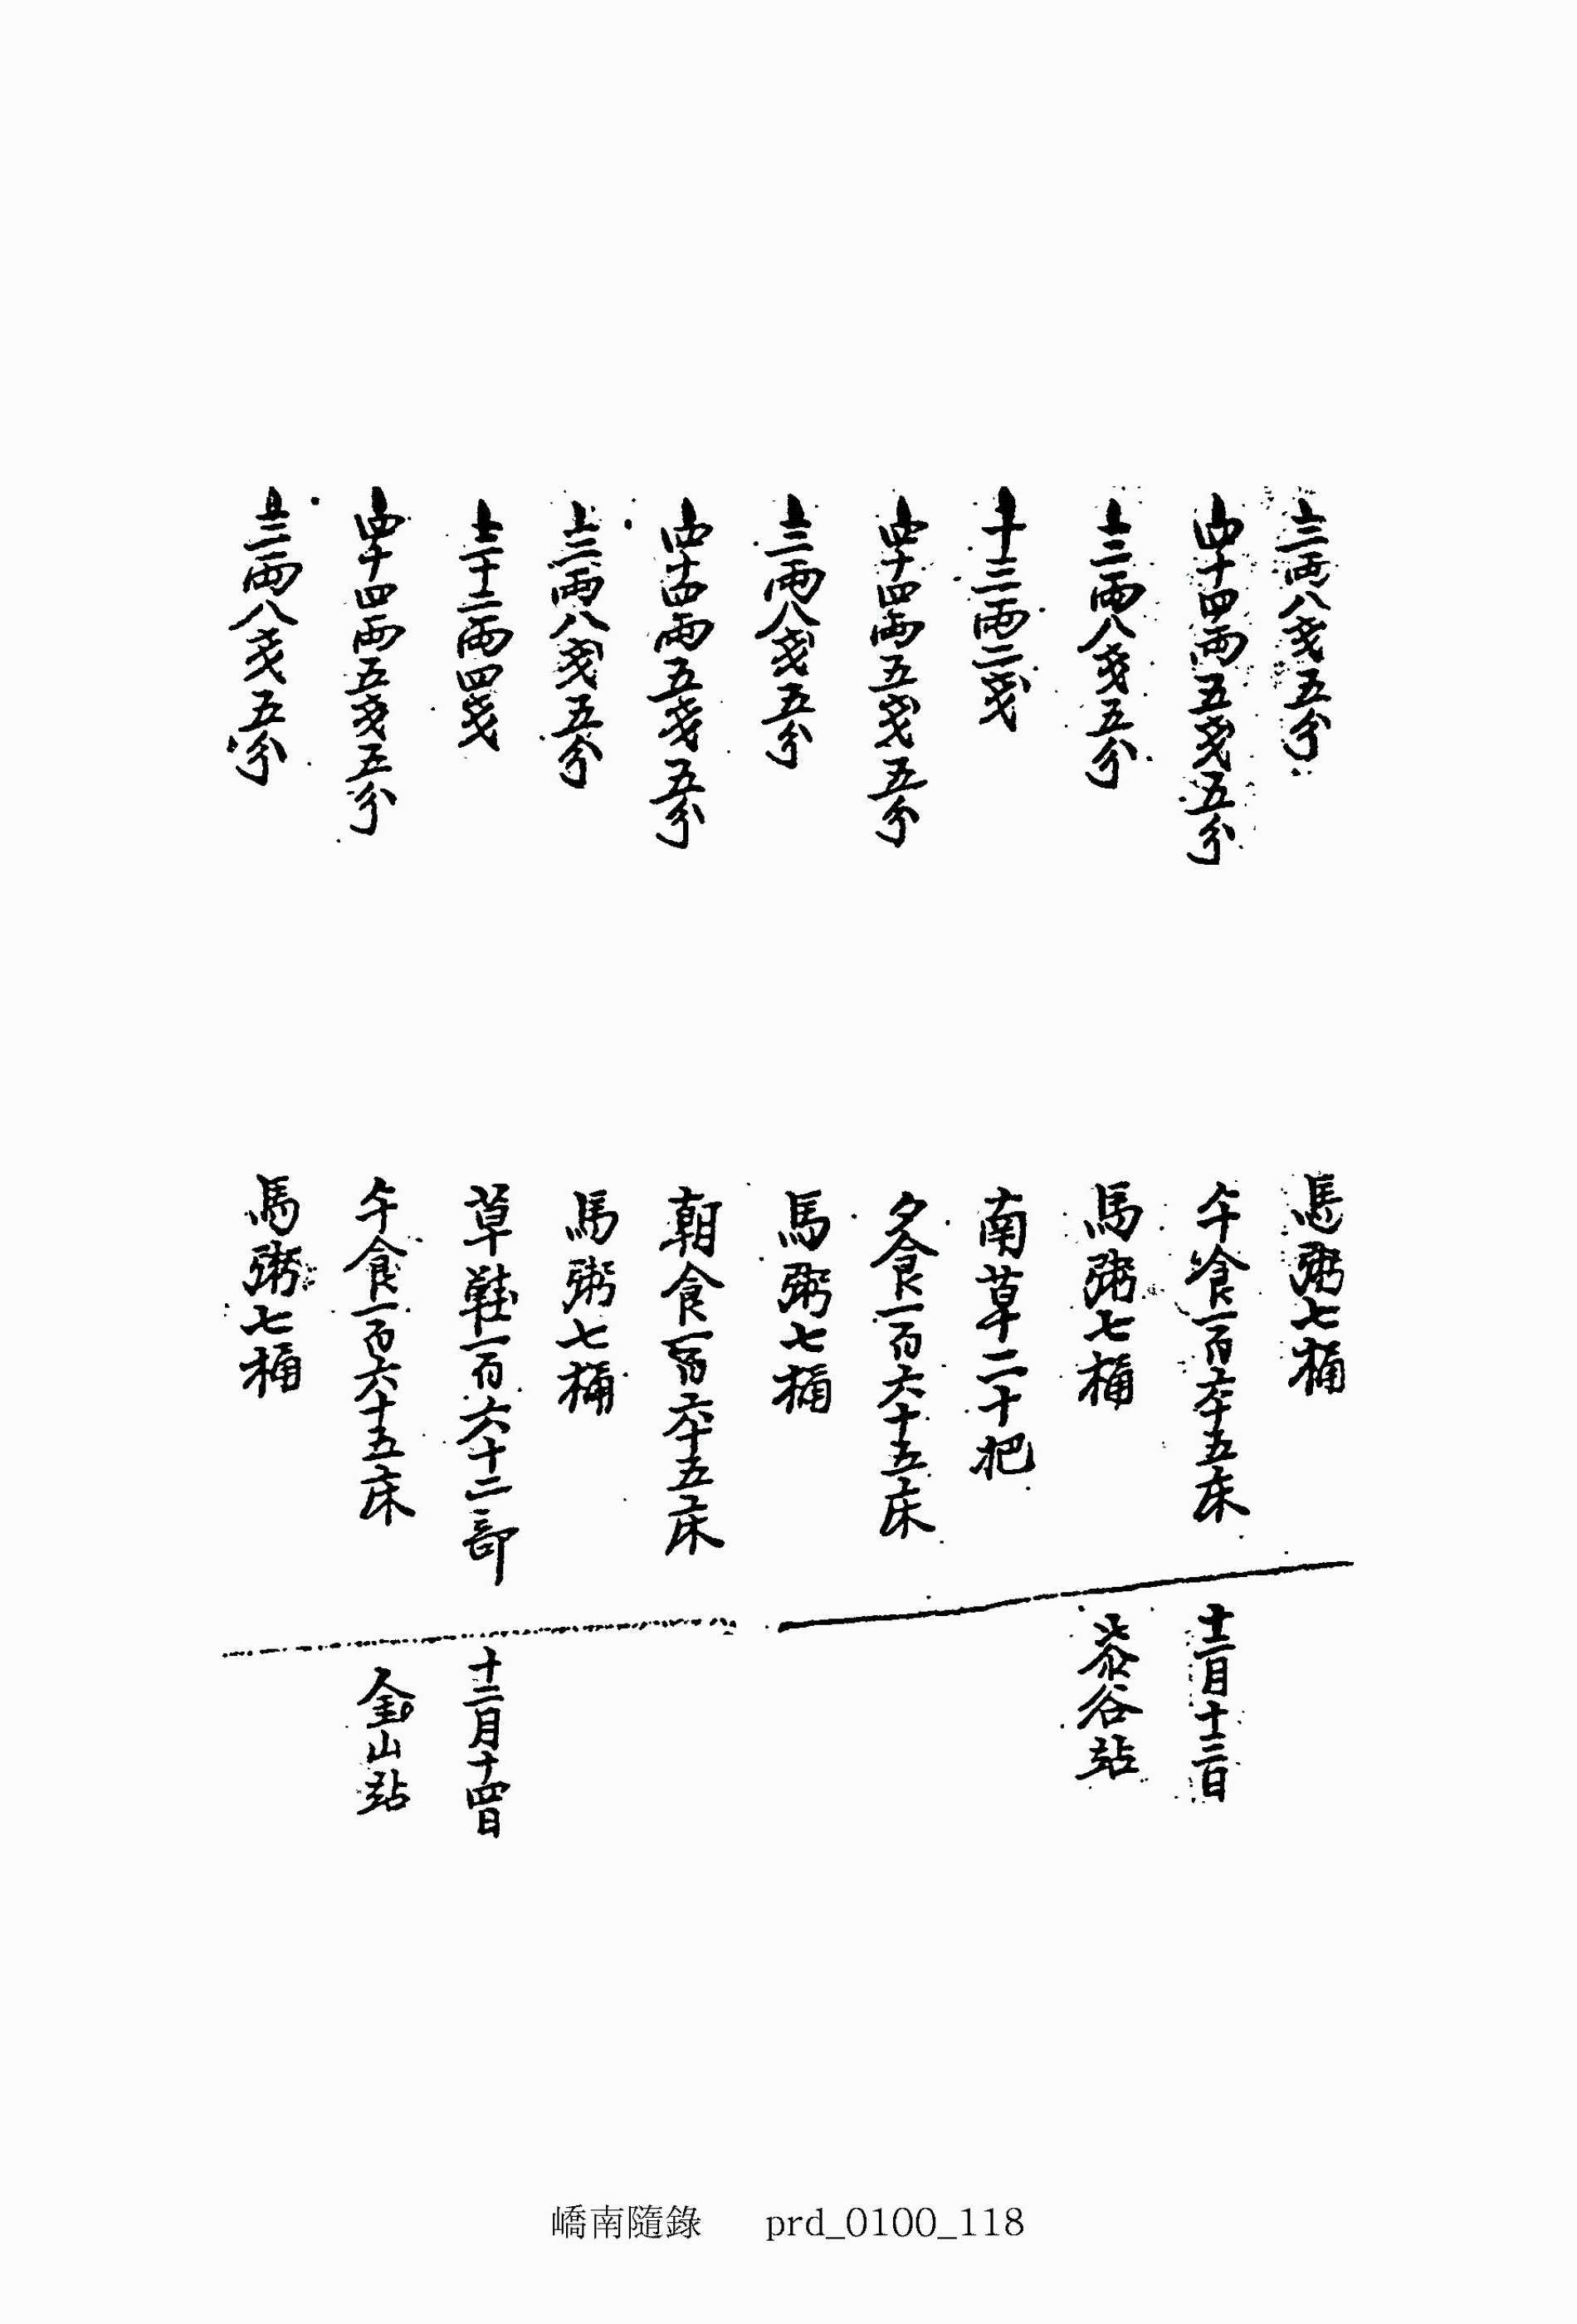 上三兩八戔五分
馬粥七桶
上四十四兩五戔五分
午食一百六十五床
十二月十三日
上三兩八戔五分
馬粥七桶
柒谷站
上十三兩二戔
南草二十把
上四十四兩五戔五分
夕食一百六十五床
上三兩八戔五分
馬粥七桶
上四十四兩五戔五分
朝食一百六十五床
上三兩八戔五分
馬粥七桶
上三十二兩四戔
草鞋一百六十二部
十二月十四日
上四十四兩五戔五分
午食一百六十五床
金山站
上三兩八戔五分
馬粥七桶
嶠南隨錄 prd_0100_118